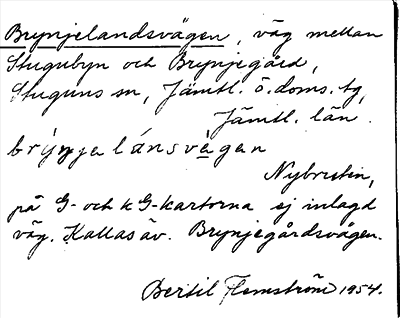 Brynjelandsvägen, väg mellan
Stugubyn och Brynjegård,
Stuguns sn, Jämtl. ö. doms. tg,
Jämtl. län.
brýnjelánsvàgen
Nybrutin,
på G- och kG-kartorna ej inlagd
väg. Kallas äv. Brynjegårdsvägen.
Bertil Flemström 1954.